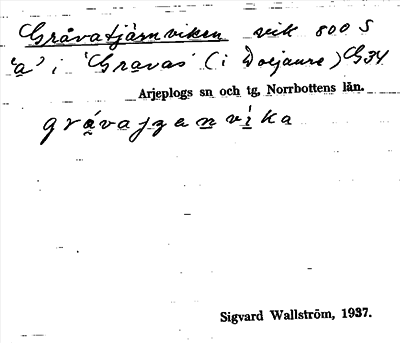 Gråvatjårnviken vik 800 S
'a' i 'Gravas' (i Doejaure) G34
Arjeplogs sn och tg, Norrbottens län.
grávajgenvíka
Sigvard Wallström, 1937.